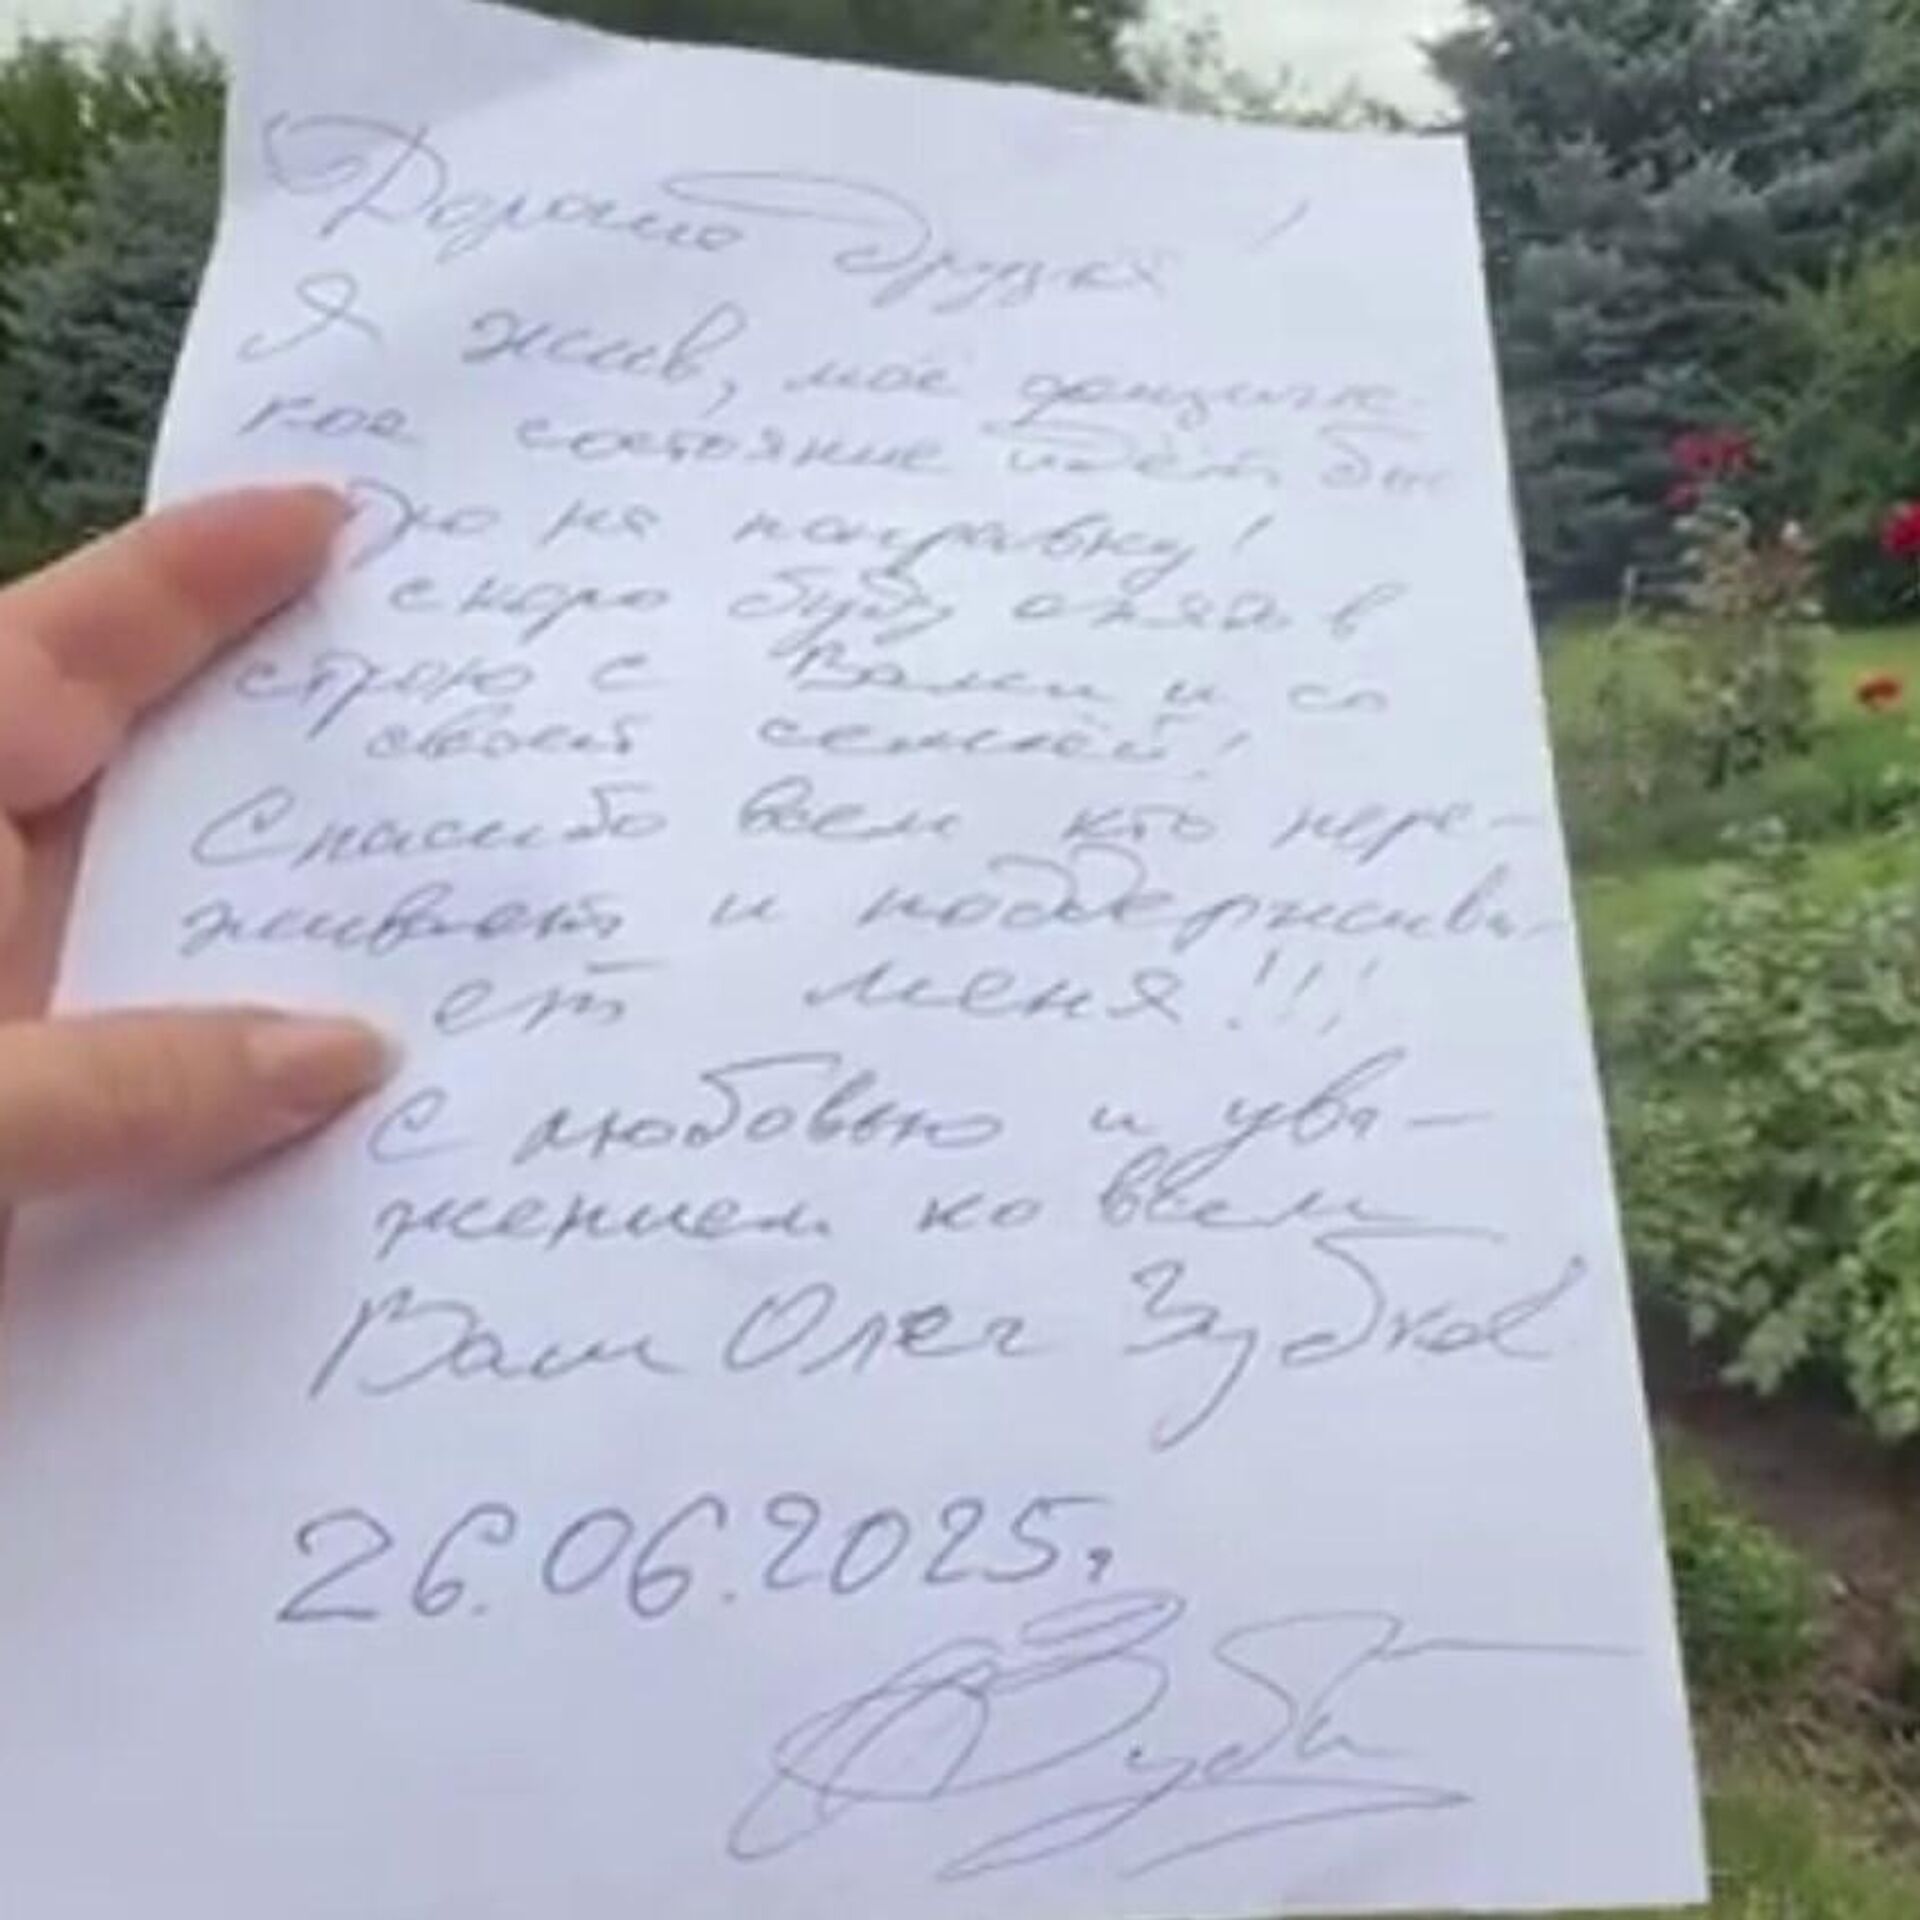 Дорогие друзья!
Я жив, моё физичес-
кое состояние идёт
на поправку!
скоро буду опять в
строю с Вами и со
своей семьёй!
Спасибо всем кто пере-
живает и поддержива-
ет меня!!!
С любовью и ува-
жением ко всем
Ваш Олег Зубков
26.06.2025г